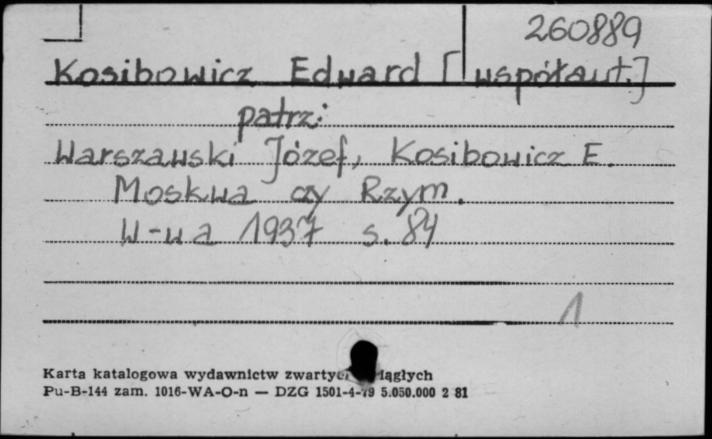 260889
Kosibowicz Edward [współaut.]
patrz:
Warszawski Józef, Kosibowicz E.
Moskwa czy Rzym.
W-wa 1937 s. 84
1
Karta katalogowa wydawnictw zwartyc iągłych
Pu-B-144 zam. 1016-WA-O-n — DZG 1501-4-79 5.050.000 2 81